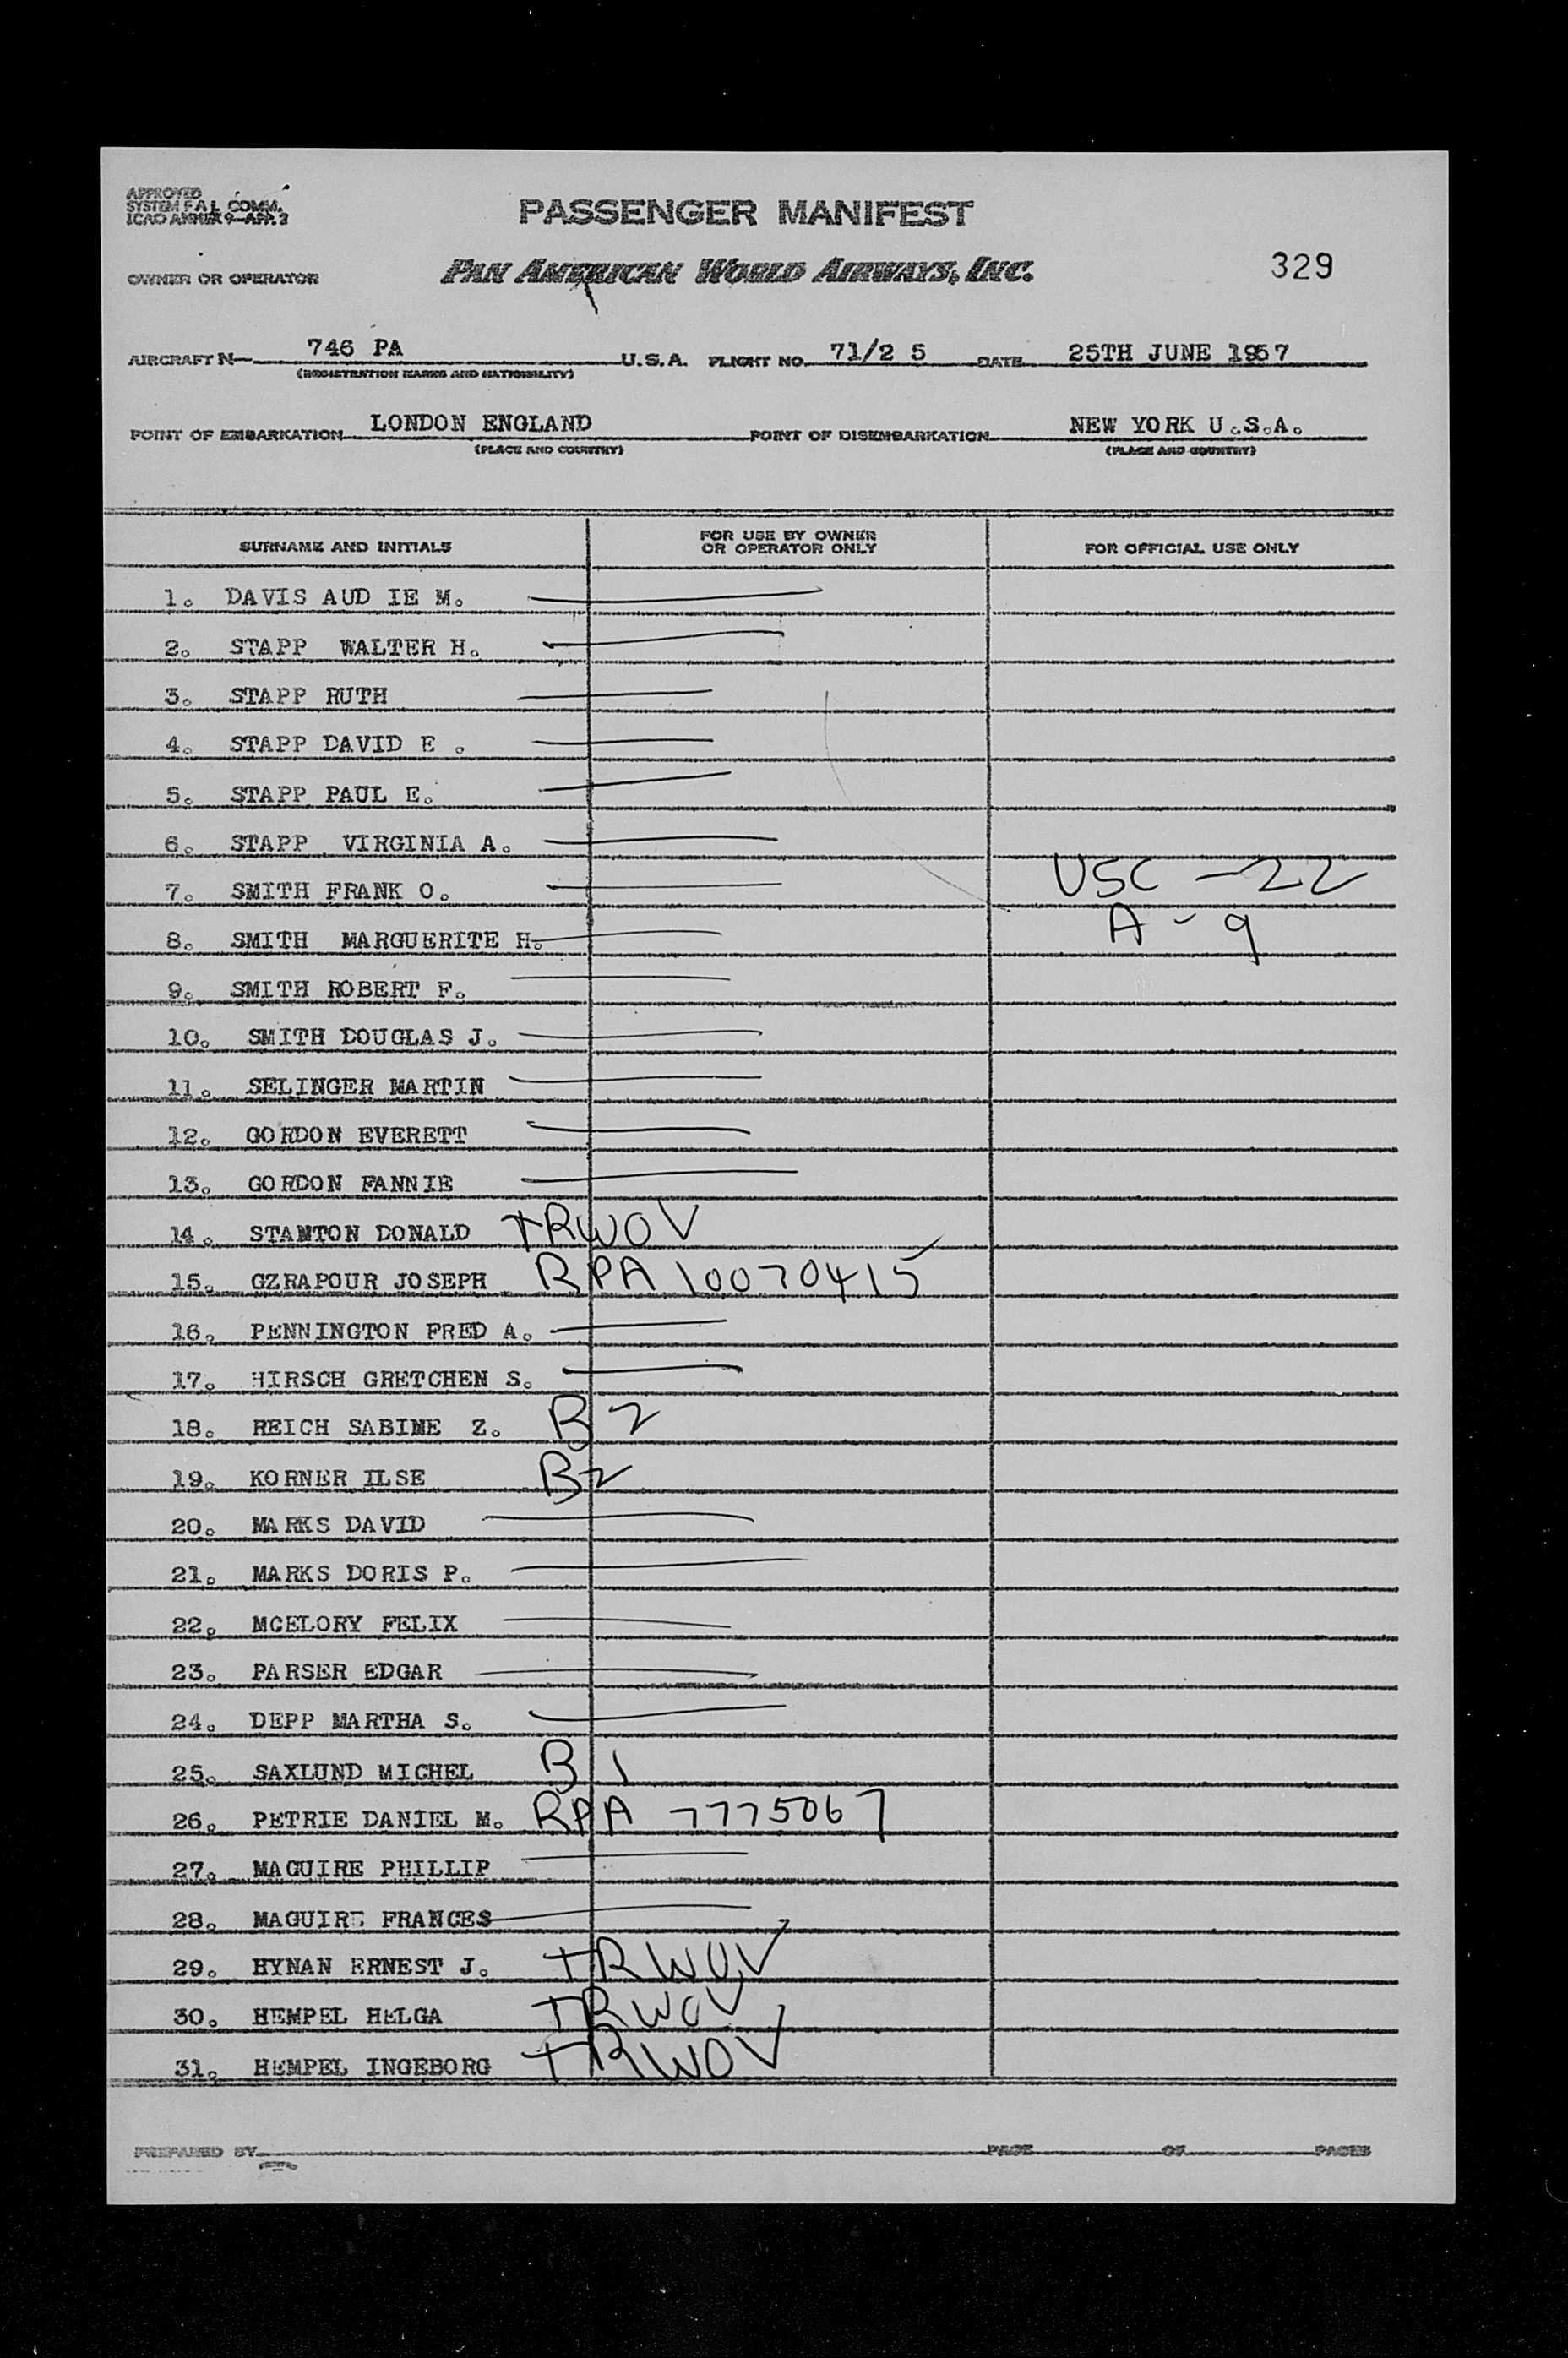 APPROVED
SYSTEM F A L COMM.
ICAO ANNEX 9—APP. 2
PASSENGER MANIFEST
OWNER OR OPERATOR
PAN AMERICAN WORLD AIRWAYS, INC.
329
AIRCRAFT N— 746 PA U.S.A. FLIGHT NO. 71/2 5 DATE 25TH JUNE 1957
(REGISTRATION MARKS AND NATIONALITY)
POINT OF EMBARKATION LONDON ENGLAND POINT OF DISEMBARKATION NEW YORK U.S.A.
(PLACE AND COUNTRY) (PLACE AND COUNTRY)
SURNAME AND INITIALS
FOR USE BY OWNER
OR OPERATOR ONLY
FOR OFFICIAL USE ONLY
1. DAVIS AUD IE M.
2. STAPP WALTER H.
3. STAPP RUTH
4. STAPP DAVID E .
5. STAPP PAUL E.
6. STAPP VIRGINIA A.
7. SMITH FRANK O. USC - 22
8. SMITH MARGUERITE H. A - 9
9. SMITH ROBERT F.
10. SMITH DOUGLAS J.
11. SELINGER MARTIN
12. GORDON EVERETT
13. GORDON FANNIE
14. STAMTON DONALD TRWOV
15. GZRAPOUR JOSEPH RPA 10070415
16. PENNINGTON FRED A.
17. HIRSCH GRETCHEN S.
18. REICH SABINE Z. B 2
19. KORNER ILSE B2
20. MARKS DAVID
21. MARKS DORIS P.
22. MCELORY FELIX
23. PARSER EDGAR
24. DEPP MARTHA S.
25. SAXLUND MICHEL B 1
26. PETRIE DANIEL M. RPA 7775067
27. MAGUIRE PHILLIP
28. MAGUIRE FRANCES
29. HYNAN ERNEST J. TRWOV
30. HEMPEL HELGA TRWOV
31. HEMPEL INGEBORG TRWOV
PREPARED BY PAGE OF PAGES